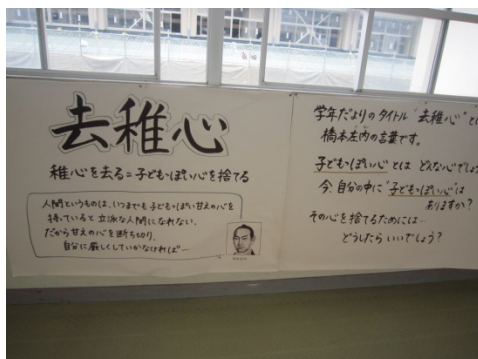 去稚心
稚心を去る=子どもっぽい心を捨てる
人間というものは、いつまでも子どもっぽい甘えの心を
持っていると立派な人間になれない。
だから甘えの心を断ち切り、
自分に厳しくしていかなければ…
学年だよりのタイトル“去稚心”と
橋本左内の言葉です。
子どもっぽい心とはどんな心でしょ
今、自分の中に“子どもっぽい心”は
ありますか?
その心を捨てるためには…
どうしたらいいでしょう?